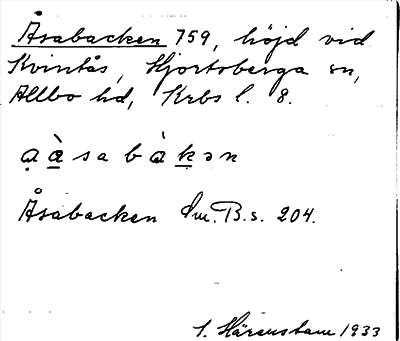 Åsabacken 759, höjd vid
Kvintås, Hjortsberga sn,
Allbo hd, Krbs l. 8.
a̤ å̱̀ s a b à ḵ ə n
Åsabacken Sm. B. s. 204.
S. Härenstam 1933